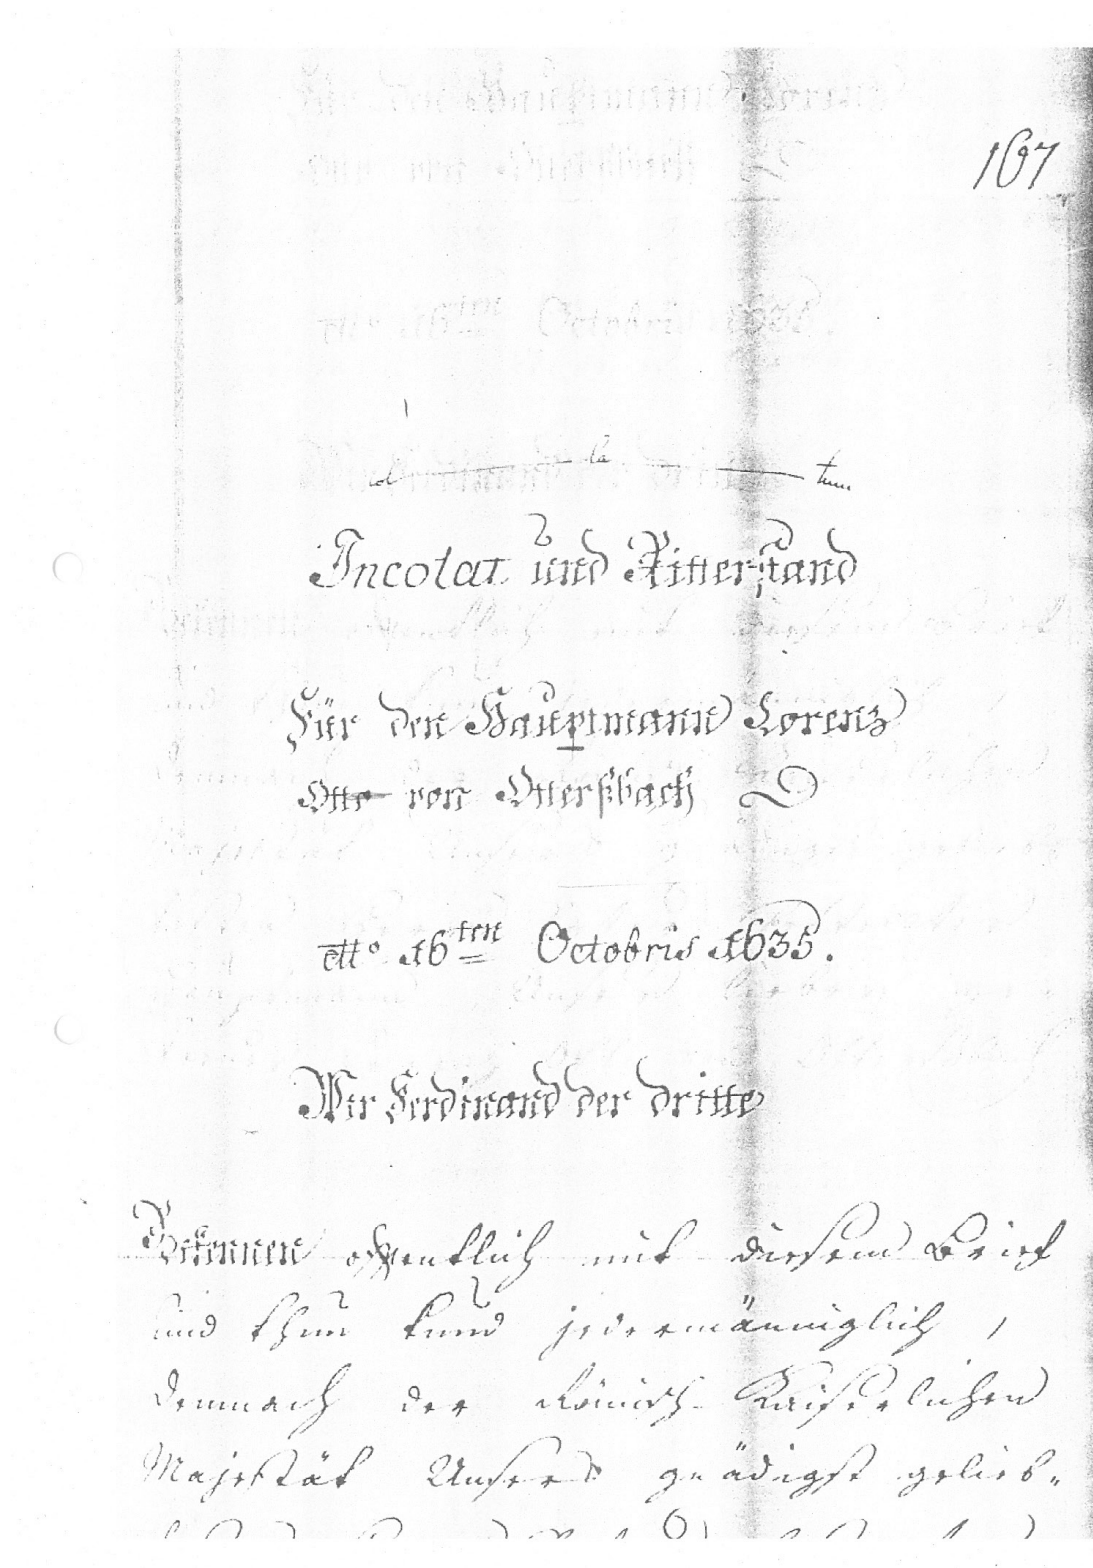 167
Incolat und Ritterstand
Für den Hauptmann Lorenz
Otto von Otterßbach
dtto 16ten Octobris 1635.
Wir Ferdinand der dritte
Bekennen offentlich mit diesem Brief
und thun kund jedermänniglich,
demnach der Römisch Kaiserlichen
Majestät Unsers gnädigst gelieb-